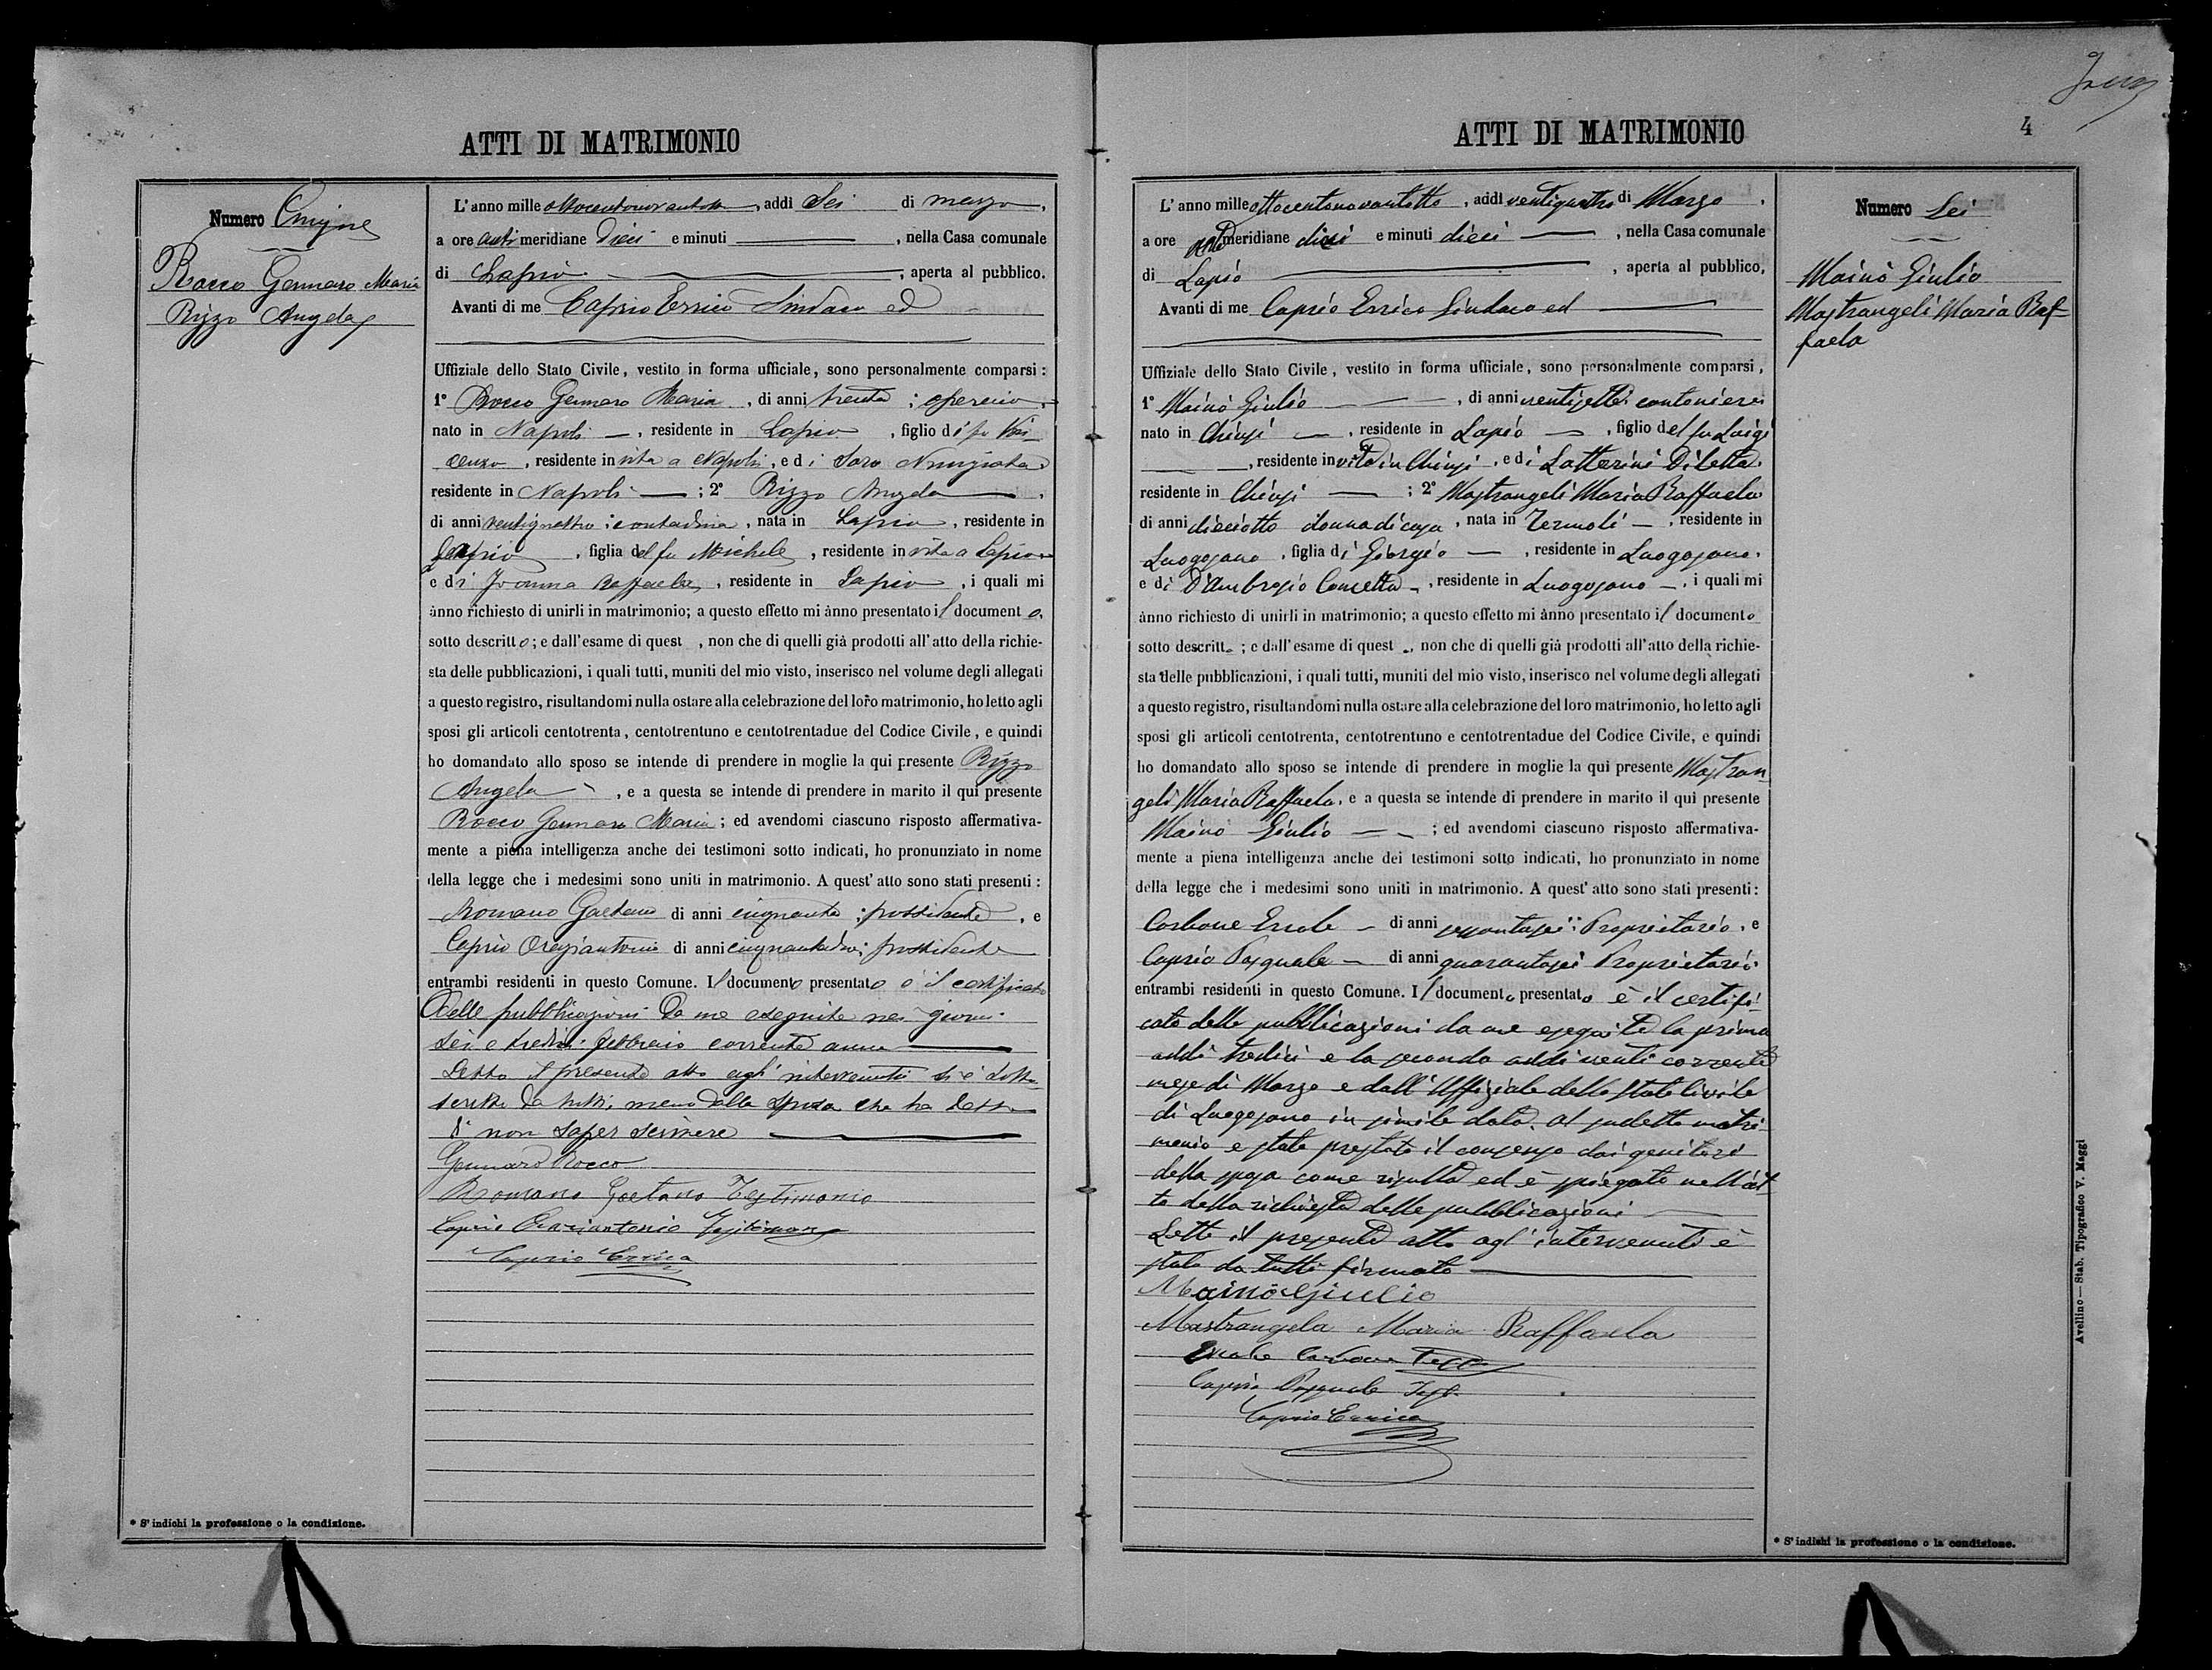 ATTI DI MATRIMONIO
Numero Cinque
Rocco Gennaro Maria
Rizzo Angela
L'anno mille ottocentonovantotto, addì Sei di marzo,
a ore anti meridiane dieci e minuti , nella Casa comunale
di Lapio , aperta al pubblico.
Avanti di me Caprio Errico Sindaco ed
Uffiziale dello Stato Civile, vestito in forma ufficiale, sono personalmente comparsi:
1° Rocco Gennaro Maria, di anni trenta; operaio,
nato in Napoli, residente in Lapio, figlio di fu Vin-
cenzo, residente in vita a Napoli, e di Nunziata,
residente in Napoli; 2° Rizzo Angela,
di anni ventiquattro; contadina, nata in Lapio, residente in
Lapio, figlia del fu Michele, residente in vita a Lapio
e di Raffaela, residente in Lapio, i quali mi
ànno richiesto di unirli in matrimonio; a questo effetto mi ànno presentato il documento
sotto descritto; e dall'esame di quest , non che di quelli già prodotti all'atto della richie-
sta delle pubblicazioni, i quali tutti, muniti del mio visto, inserisco nel volume degli allegati
a questo registro, risultandomi nulla ostare alla celebrazione del loro matrimonio, ho letto agli
sposi gli articoli centotrenta, centotrentuno e centotrentadue del Codice Civile, e quindi
ho domandato allo sposo se intende di prendere in moglie la qui presente Rizzo
Angela , e a questa se intende di prendere in marito il qui presente
Rocco Gennaro Maria; ed avendomi ciascuno risposto affermativa-
mente a piena intelligenza anche dei testimoni sotto indicati, ho pronunziato in nome
della legge che i medesimi sono uniti in matrimonio. A quest'atto sono stati presenti:
Romano Gaetano di anni cinquanta; possidente, e
Caprio Oraziantonio di anni cinquantadue; possidente
entrambi residenti in questo Comune. Il documento presentato è il certificato
delle pubblicazioni da me eseguite nei giorni
sei e tredici febbraio corrente anno
Letto il presente atto agli intervenuti si è sotto
scritto da tutti, meno dalla sposa che ha detto
di non saper scrivere
Gennaro Rocco
Romano Gaetano Testimonio
Caprio Oraziantonio Testimone
Caprio Errico
* S'indichi la professione o la condizione.
ATTI DI MATRIMONIO
4
Numero Sei
Mainò Giulio
Mastrangeli Maria Raf-
faela
L'anno mille ottocentonovantotto, addì ventiquattro di Marzo,
a ore meridiane dieci e minuti dieci , nella Casa comunale
di Lapio , aperta al pubblico,
Avanti di me Caprio Errico Sindaco ed
Uffiziale dello Stato Civile, vestito in forma ufficiale, sono personalmente comparsi,
1° Mainò Giulio , di anni ventisette cantoniere
nato in Chiusi, residente in Lapio, figlio del fu Luigi
, residente in vita in Chiusi, e di Lotterini Diletta,
residente in Chiusi; 2° Mastrangeli Maria Raffaela
di anni dieciotto donna di casa, nata in Termoli, residente in
Luogosano, figlia di Giorgio, residente in Luogosano,
e di D'Ambrosio Concetta, residente in Luogosano, i quali mi
ànno richiesto di unirli in matrimonio; a questo effetto mi ànno presentato il documento
sotto descritto; e dall'esame di quest , non che di quelli già prodotti all'atto della richie-
sta delle pubblicazioni, i quali tutti, muniti del mio visto, inserisco nel volume degli allegati
a questo registro, risultandomi nulla ostare alla celebrazione del loro matrimonio, ho letto agli
sposi gli articoli centotrenta, centotrentuno e centotrentadue del Codice Civile, e quindi
ho domandato allo sposo se intende di prendere in moglie la qui presente Mastran
geli Maria Raffaela, e a questa se intende di prendere in marito il qui presente
Mainò Giulio ; ed avendomi ciascuno risposto affermativa-
mente a piena intelligenza anche dei testimoni sotto indicati, ho pronunziato in nome
della legge che i medesimi sono uniti in matrimonio. A quest'atto sono stati presenti:
Carbone Ercole di anni sessantasei; Proprietario, e
Caprio Pasquale di anni quarantasei Proprietario
entrambi residenti in questo Comune. Il documento presentato è il certifi
cato delle pubblicazioni da me eseguite la prima
addì tredici e la seconda addì venti corrente
mese di Marzo e dall'Uffiziale dello Stato Civile
di Luogosano in simile data. Al sudetto matri
monio è stato prestato il consenso dai genitori
della sposa come risulta ed è spiegato nell'at
to della richiesta delle pubblicazioni
Letto il presente atto agl'intervenuti è
stato da tutti firmato
Mainò Giulio
Mastrangela Maria Raffaela
Ercole Carbone Test
Caprio Pasquale Test
Caprio Errico
* S'indichi la professione o la condizione.
Avellino — Stab. Tipografico V. Maggi